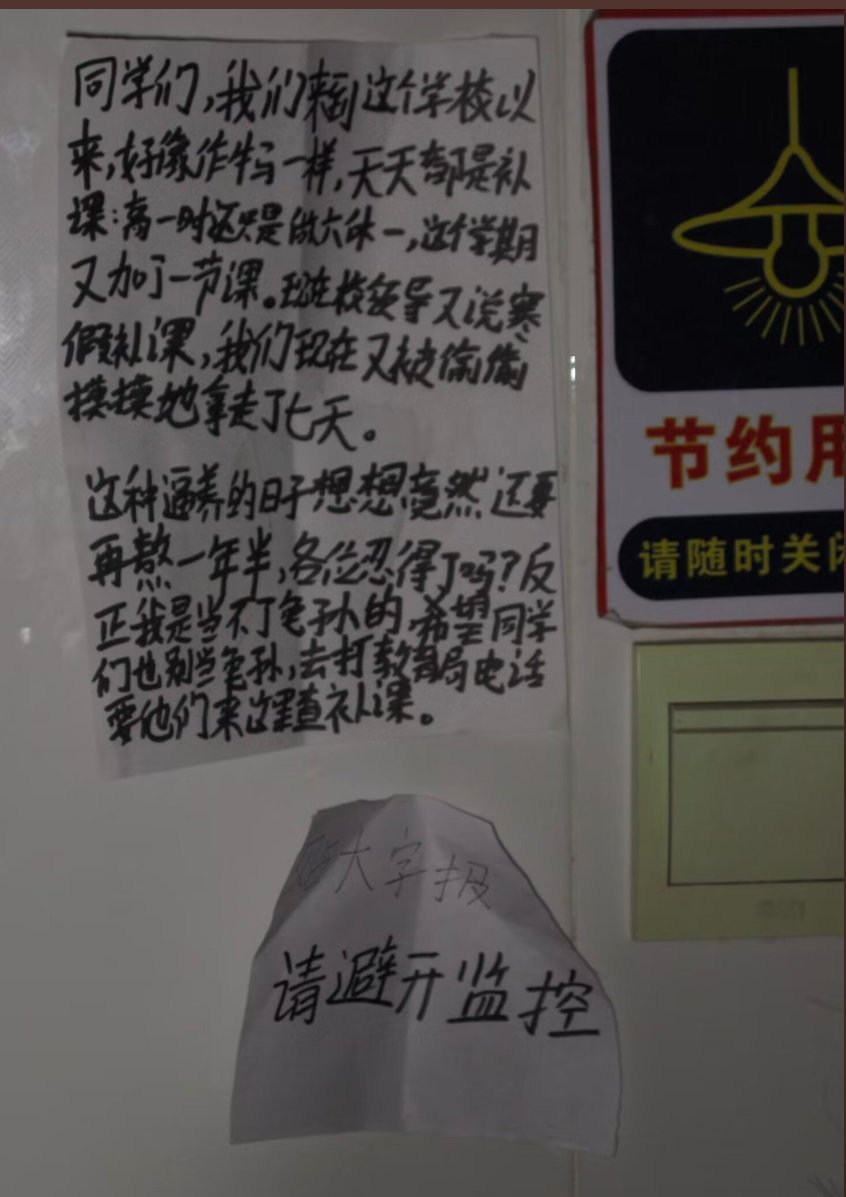 同学们,我们来到这个学校以
来,好像作牛马一样,天天都是补
课:高一时还只是做六休一,这个学期
又加了一节课。现在校领导又说寒
假补课,我们现在又被偷偷
摸摸地拿走了七天。
这种逼养的日子想想竟然还要
再熬一年半,各位忍得了吗?反
正我是当不了龟孙的,希望同学
们也别当龟孙,去打教育局电话
要他们来这里查补课。
大字报
请避开监控
节约用
请随时关闭